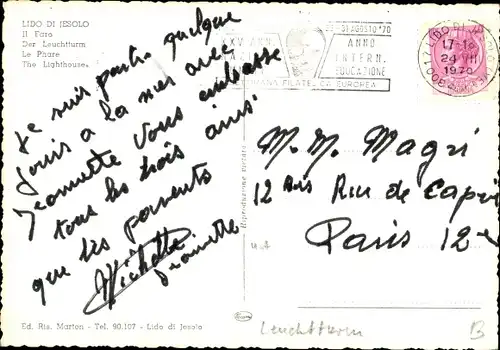 LIDO DI JESOLO
Il Faro
Der Leuchtturm
Le Phare
The Lighthouse
Je suis partie quelque
jours a la mer avec
Jeannette Vous embrasse
tous les trois ainsi
que les parents
Michette
Jeannette
23-31 AGOSTO '70
ANNO
INTERN.
EDUCAZIONE
FILATELICA EUROPEA
LIDO DI JESOLO
17-18
24 VII
1970
M. M. Magri
12 Bis Rue de Capri
Paris 12e
Riproduzione vietata
Ed. Ris. Marton - Tel. 90.107 - Lido di Jesolo
Leuchtturm
B